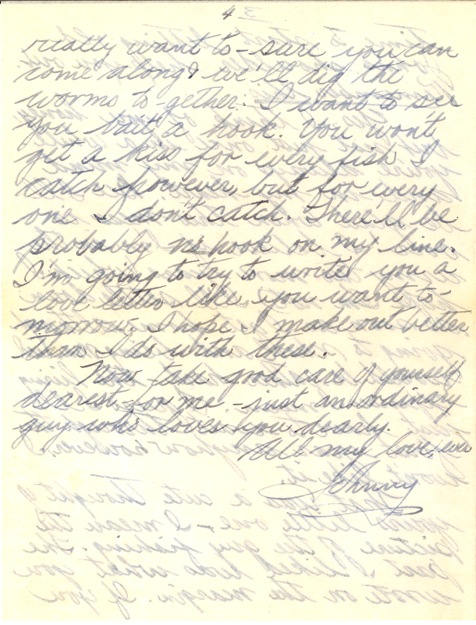 4
really want to - sure you can
come along & we'll dig the
worms to-gether. I want to see
you bait a hook. You won't
get a kiss for every fish I
catch however, but for every
one I don't catch. There'll be
probably no hook on my line.
I'm going to try to write you a
love letter like you want to-
morrow, I hope I make out better
than I do with these.
Now take good care of yourself
dearest - for me - just an ordinary
guy who loves you dearly.
All my love, ever
Johnny